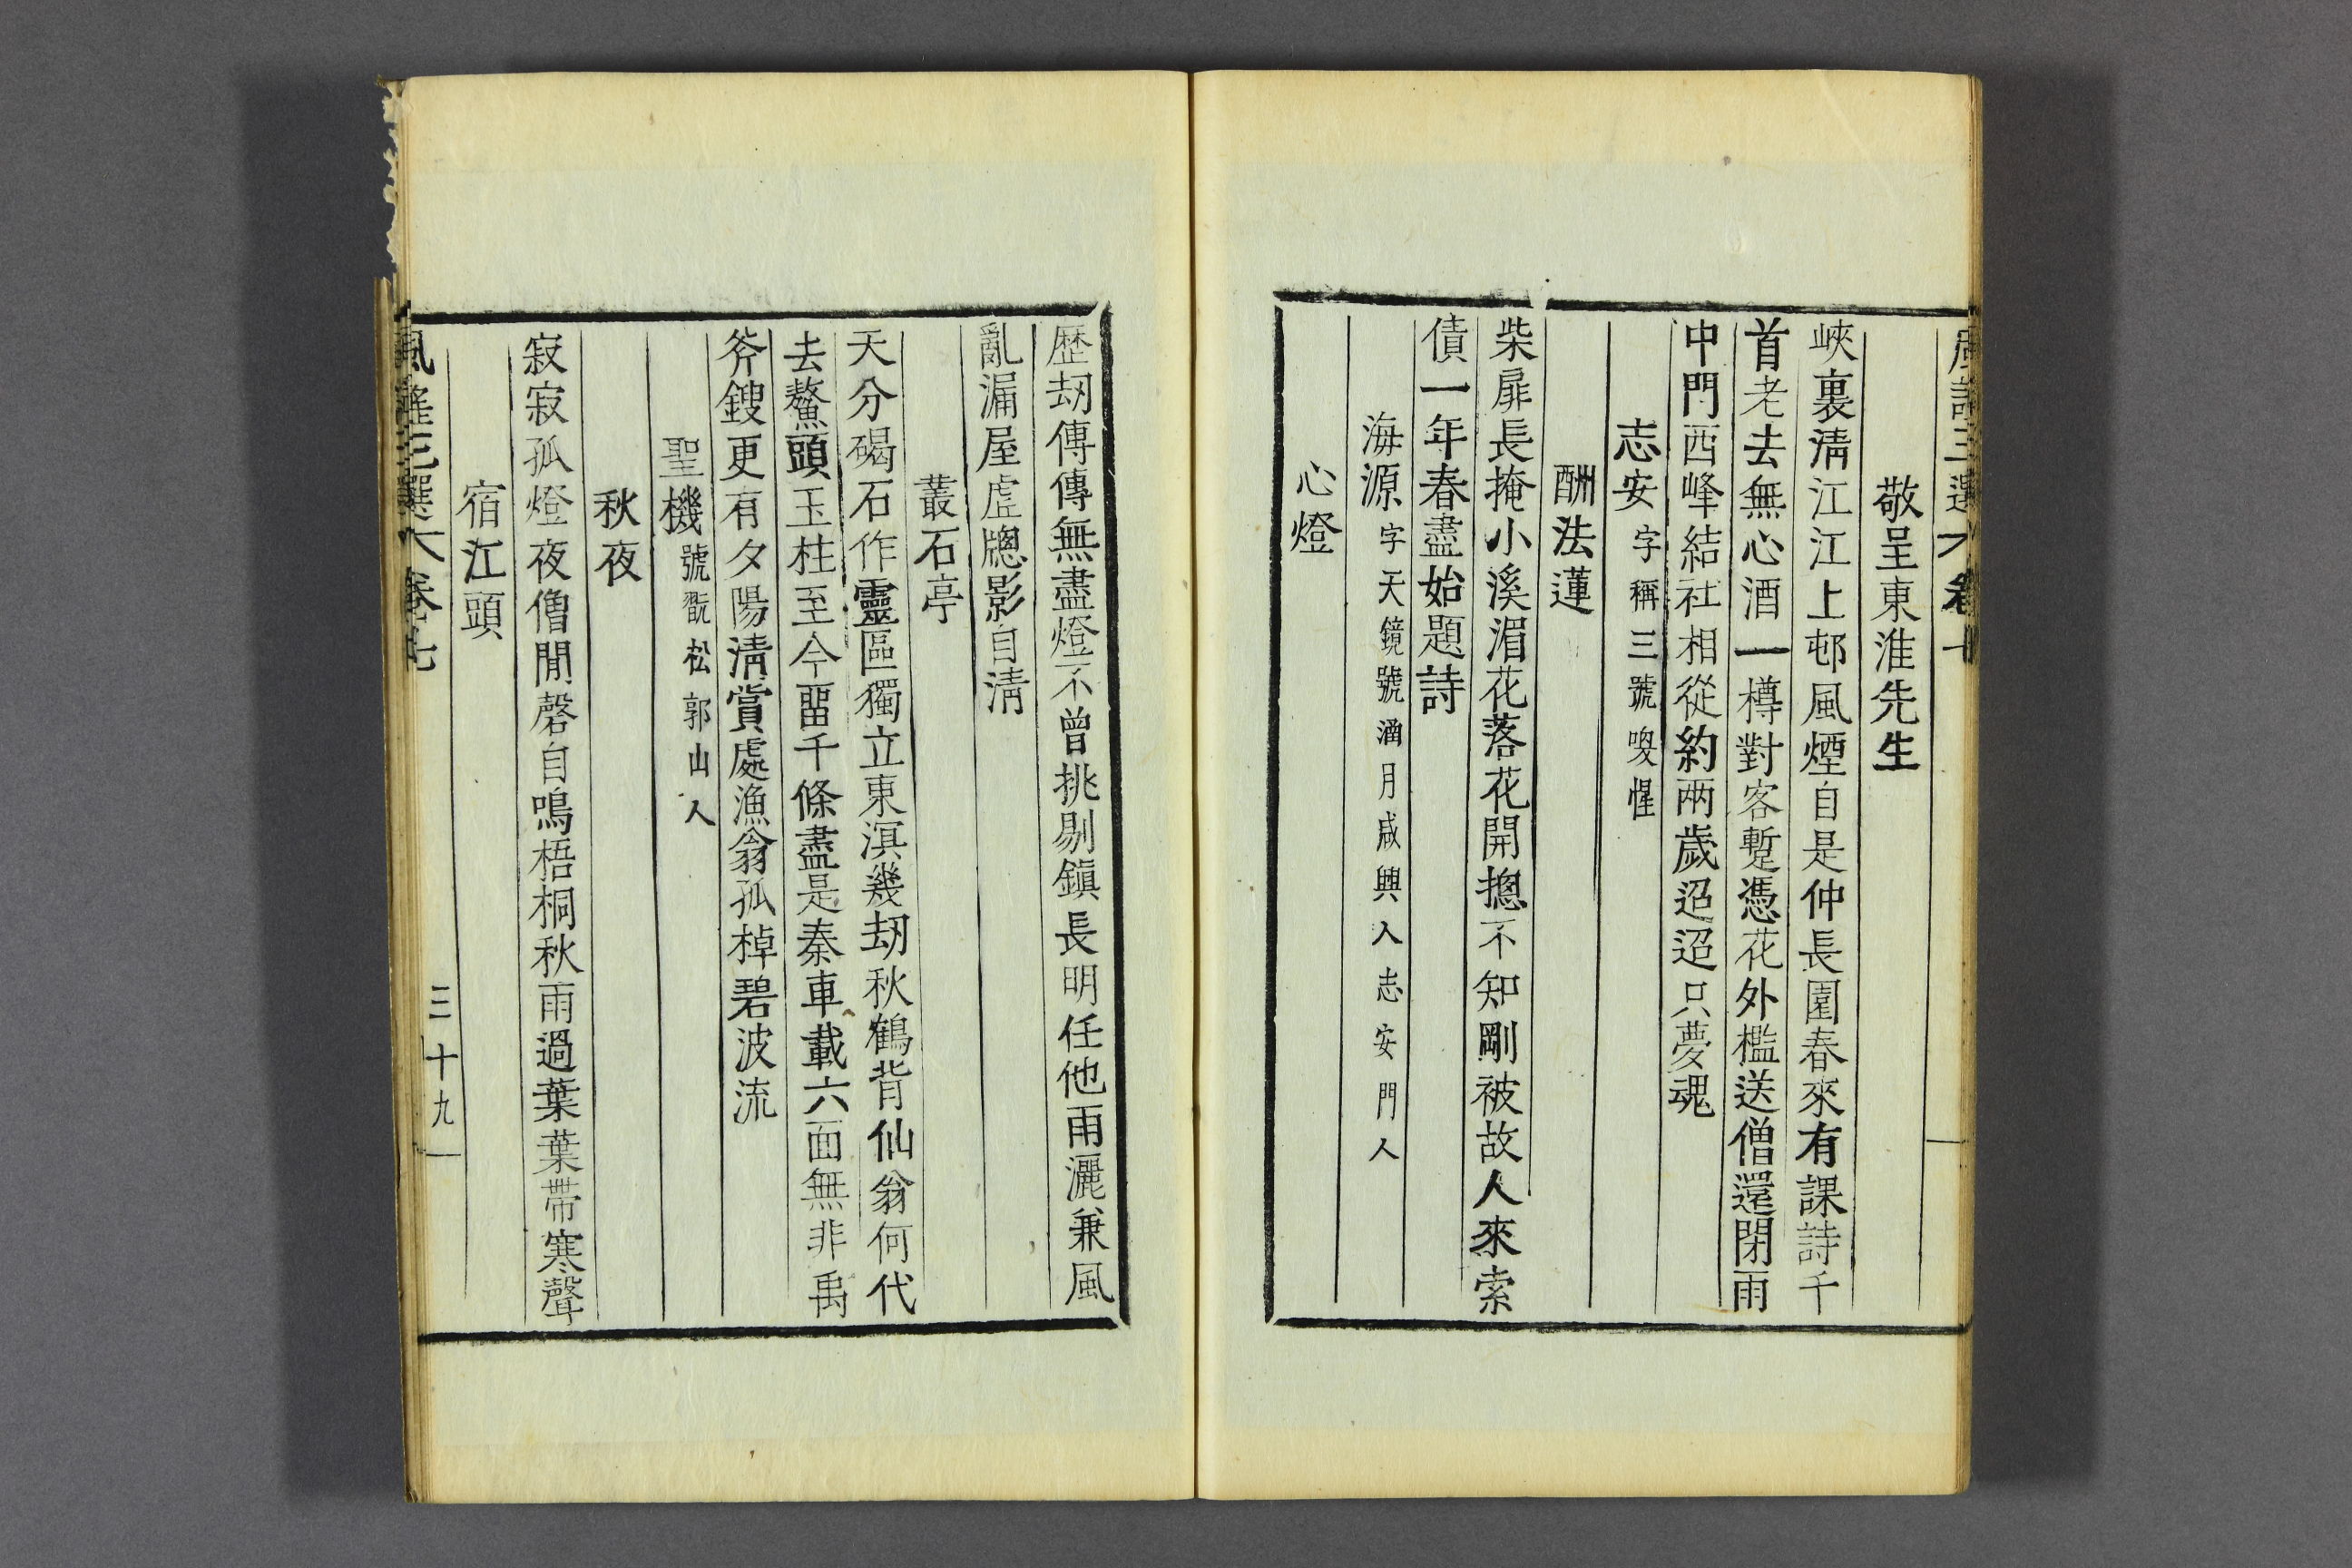 敬呈東淮先生
峽裏淸江江上邨風煙自是仲長園春來有課詩千
首老去無心酒一樽對客蹔憑花外檻送僧還閉雨
中門西峰結社相從約兩歲迢迢只夢魂
志安字稱三號喚惺
酬法蓮
柴扉長掩小溪湄花落花開摠不知剛被故人來索
債一年春盡始題詩
海源字天鏡號涵月咸興人志安門人
心燈
歷刼傳傳無盡燈不曾挑剔鎭長明任他雨灑兼風
亂漏屋虛牕影自淸
叢石亭
天分碣石作靈區獨立東溟幾刼秋鶴背仙翁何代
去鰲頭玉柱至今畱千條盡是秦車載六面無非禹
斧鎪更有夕陽淸賞處漁翁孤棹碧波流
聖機號翫松郭山人
秋夜
寂寂孤燈夜僧閒磬自鳴梧桐秋雨過葉葉帶寒聲
宿江頭
三十九